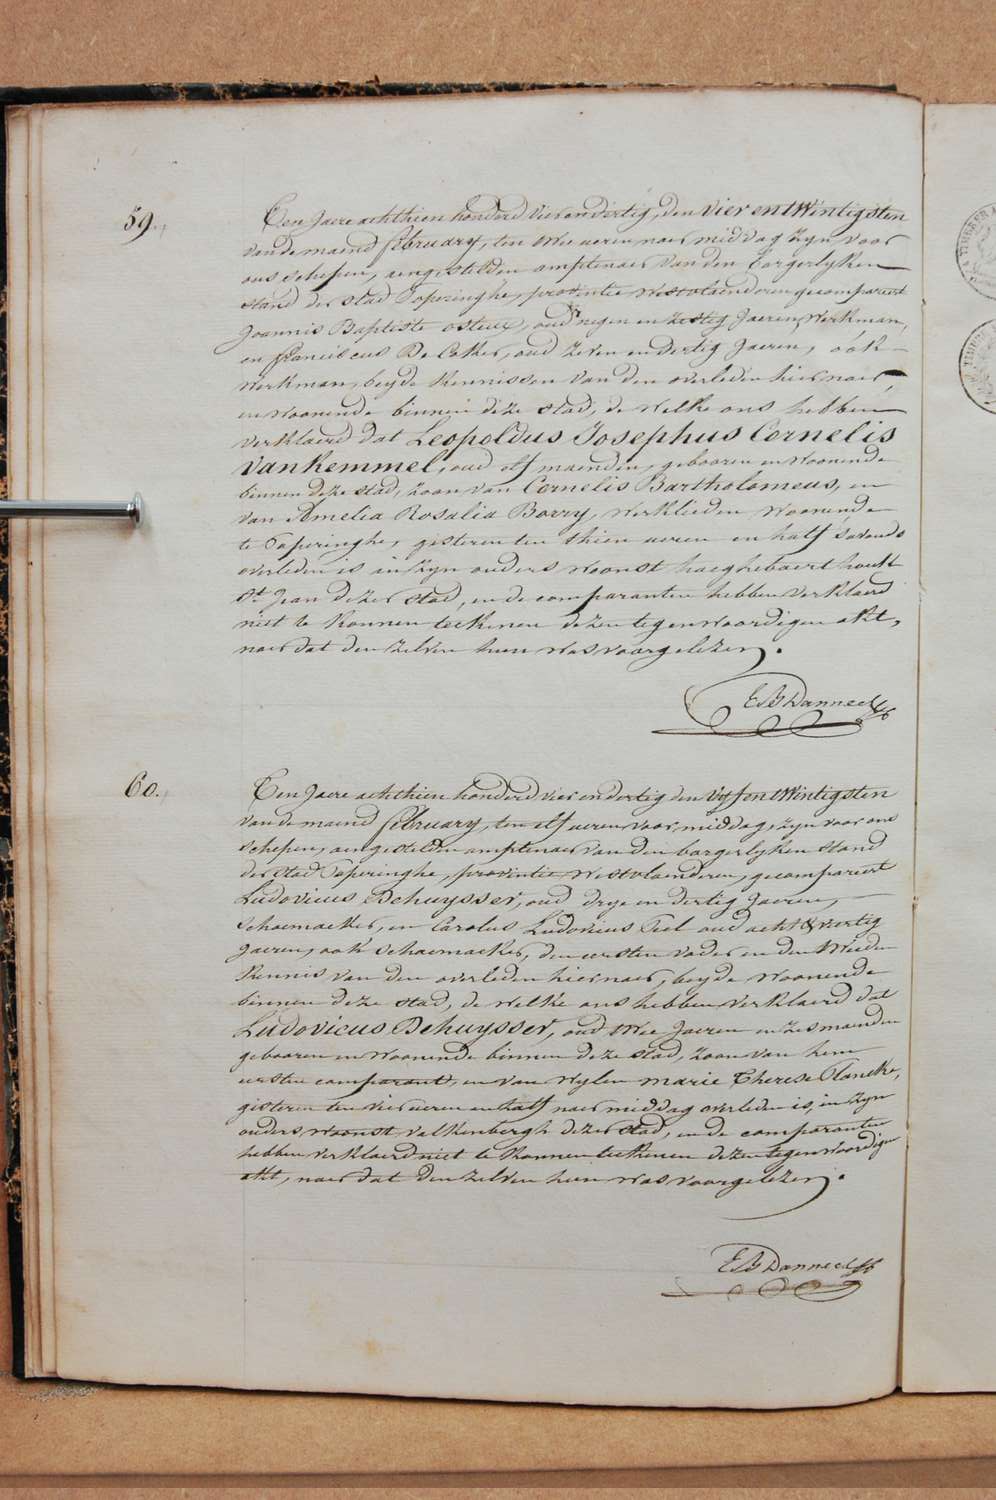 59.
Ten Jaere achthien honderd vier en dertig, den vier en twintigsten
van de maend february, ten twee ueren naer middag zyn voor
ons schepen, aengestelden amptenaer van den borgerlyken
stand der stad Poperinghe, provintie westvlaenderen gecompareert
Joannis Baptiste osteux, oud negen en zestig Jaeren, werkman,
en franciscus De Coker, oud zeven en dertig Jaeren, ook
werkman, beyde kennissen van den overleden hier naer,
en woonende binnen deze stad, de welke ons hebben
verklaerd dat Leopoldus Josephus Cornelis
vankemmel, oud elf maenden, gebooren en woonende
binnen deze stad, zoon van Cornelis Bartholomeus, en
van Amelia Rosalia Borry, werklieden woonende
te Poperinghe, gisteren ten thien ueren en half s'avonds
overleden is in zyn ouders woonst haeghebaert houk
St Jean dezer stad, en de comparanten hebben verklaerd
niet te konnen teekenen dezen tegenwoordigen akt,
naer dat den zelven hun was voorgelezen.
E B Danneel
60.
Ten Jaere achthien honderd vier en dertig den vyf en twintigsten
van de maend february, ten elf ueren voor middag, zyn voor ons
schepen, aengestelden amptenaer van den borgerlyken stand
der stad Poperinghe, provintie westvlaenderen, gecompareert
Ludovicus Dehuysser, oud drye en dertig Jaeren,
schoemaeker, en Carolus Ludovicus Tiel oud acht & veertig
Jaeren, ook schoemaeker, den eersten vader en den tweeden
kennis van den overleden hier naer, beyde woonende
binnen deze stad, de welke ons hebben verklaerd dat
Ludovicus Dehuysser, oud twee Jaeren en zes maenden
gebooren en woonende binnen deze stad, zoon van hem
eersten comparant, en van wylen marie Therese Plancke,
gisteren ten vier ueren en half naer middag overleden is, in zyn
ouders woonst valkenbergh dezer stad, en de comparanten
hebben verklaerd niet te konnen teekenen dezen tegenwoordigen
akt, naer dat den zelven hun was voorgelezen.
E B Danneel